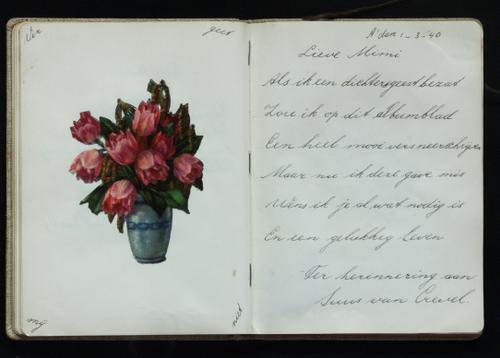 Ver
geet
mij
niet
A'dam 1-3-'40
Lieve Mimi
Als ik een dichtersgeest bezat
Zou ik op dit Albumblad
Een heel mooi vers neerschrijven
Maar nu ik deze gave mis
Wens ik je al wat nodig is
En een gelukkig leven
Ter herinnering aan
Suus van Crevel.